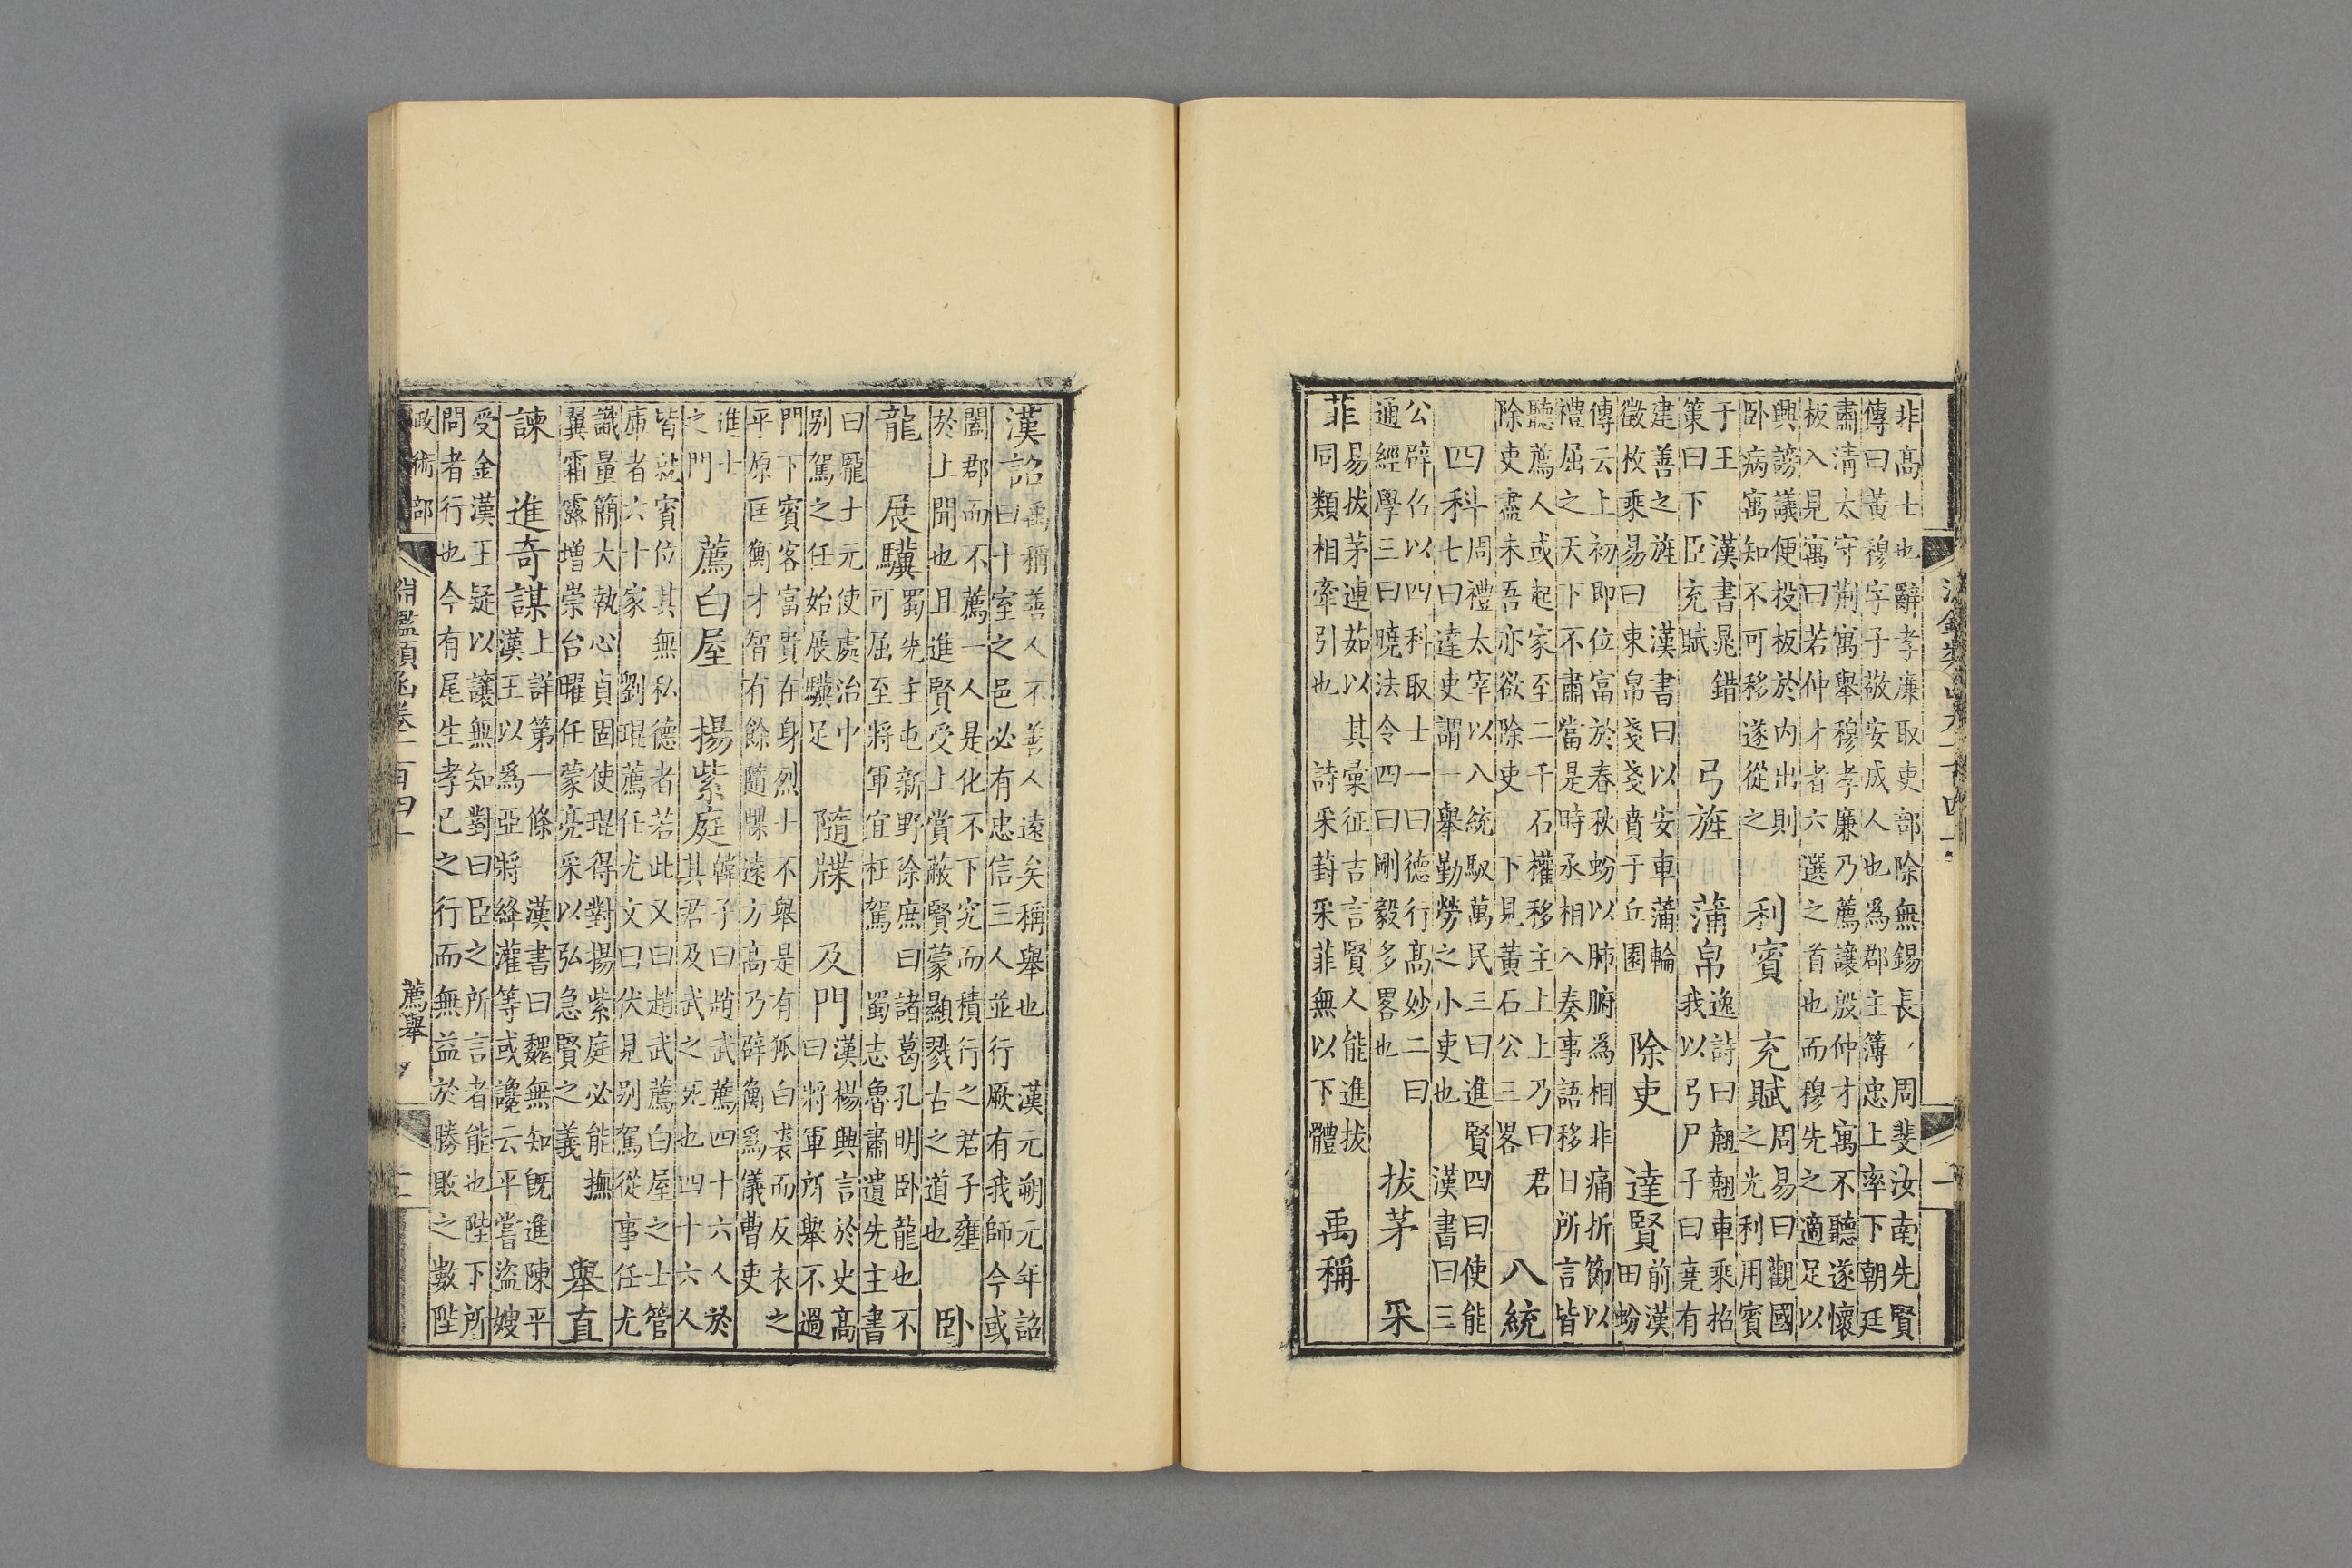 非高士也辭孝廉取吏部除無錫長 周斐汝南先賢
傳曰黃穆字子敬安成人也爲郡主簿忠上率下朝廷
肅清太守荆寓舉穆孝廉乃薦讓殷仲才寓不聽遂懷
板入見寓曰若仲才者六選之首也而穆先之適足以
興謗議便投板於内出則
卧病寓知不可移遂從之
利賓 充賦
周易曰觀國
之光利用賓
于王 漢書晁錯
策曰下臣充賦
弓旌 蒲帛
逸詩曰翹翹車乘招
我以弓尸子曰堯有
建善之旌 漢書曰以安車蒲輪
徵枚乘易曰束帛戔戔賁于丘園
除吏 達賢
前漢
田蚡
傳云上初即位富於春秋蚡以肺腑爲相非痛折節以
禮屈之天下不肅當是時丞相入奏事語移日所言皆
聽薦人或起家至二千石權移主上上乃曰君
除吏盡未吾亦欲除吏 下見黃石公三畧
八統
四科
周禮太宰以八統馭萬民三曰進賢四曰使能
七曰達吏謂一舉勤勞之小吏也 漢書曰三
公辟召以四科取士一曰德行高妙二曰
通經學三曰曉法令四曰剛毅多畧也
拔茅 采
菲
易拔茅連茹以其彙征古言賢人能進拔
同類相牽引也 詩采葑采菲無以下體
禹稱
漢詔
禹稱善人不善人遠矣稱舉也 漢元朔元年詔
曰十室之邑必有忠信三人並行厥有我師今或
闔郡而不薦一人是化不下究而積行之君子壅
於上聞也且進賢受上賞蔽賢蒙顯戮古之道也
卧
龍 展驥
蜀先主屯新野徐庶曰諸葛孔明卧龍也不
可屈至將軍宜枉駕 蜀志魯肅遺先主書
曰龐士元使處治中
别駕之任始展驥足
隨牒 及門
漢楊興言於史高
曰將軍所舉不過
門下賓客富貴在身烈士不舉是有狐白裘而反衣之
平原匡衡才智有餘隨牒遠方高乃辟衡爲儀曹吏
進士
之門
薦白屋 揚紫庭
韓子曰趙武薦四十六人於
其君及武之死也四十六人
皆就賓位其無私德者若此又曰趙武薦白屋之士管
庫者六十家 劉琨薦任尤文曰伏見别駕從事任尤
識量簡大執心貞固使琨得對揚紫庭必能撫
翼霜露增崇台曜任蒙亮采以弘急賢之義
舉直
諫 進奇謀
上詳第一條 漢書曰魏無知旣進陳平
漢王以爲亞將絳灌等或讒云平嘗盜嫂
受金漢王疑以讓無知對曰臣之所言者能也陛下所
問者行也今有尾生孝己之行而無益於勝敗之數陛
政術部 淵鑑類函卷一百四十 薦舉